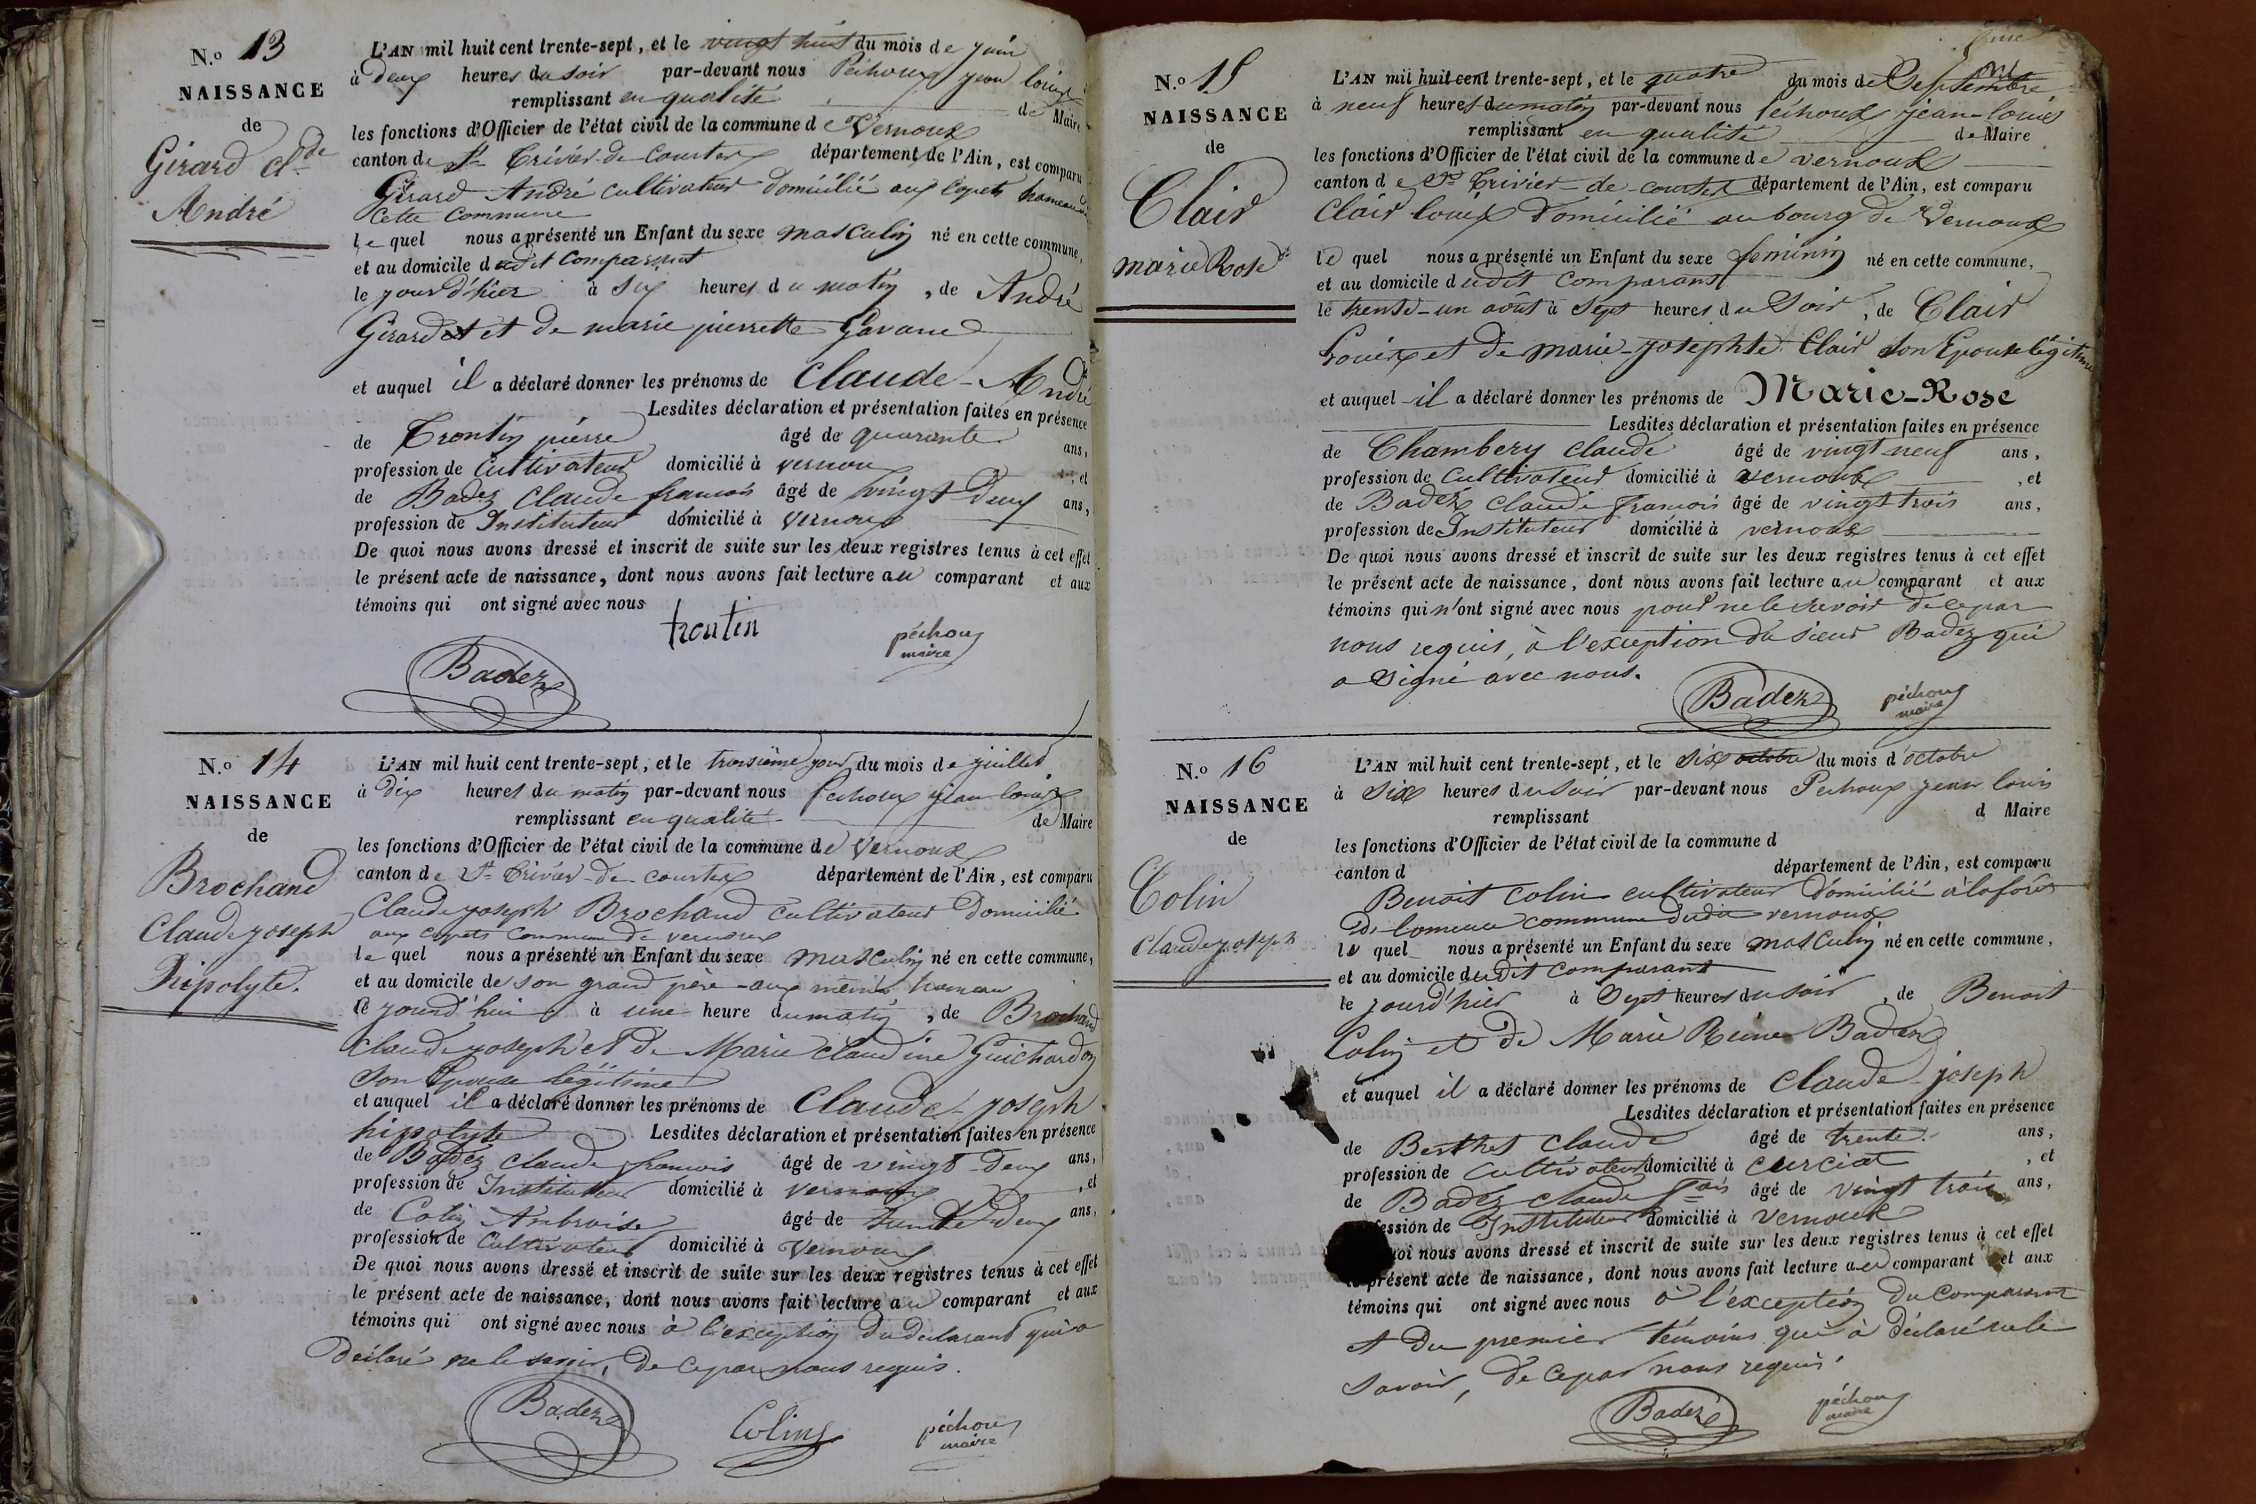 N.o 13
NAISSANCE
de
Girard Cl.de
André
L'AN mil huit cent trente-sept, et le vingt huit du mois de juin
à deux heures du soir par-devant nous Péchoux jean louis
remplissant en qualité de Maire
les fonctions d'Officier de l'état civil de la commune de Vernoux
canton de St Trivier-de-Courtes département de l'Ain, est comparu
Girard André cultivateur domicilié aux Capets hameau de
cette commune
lequel nous a présenté un Enfant du sexe masculin né en cette commune,
et au domicile dudit comparant
le jour d'hier à six heures du matin, de André
Girard et de marie pierrette Gavand
et auquel il a déclaré donner les prénoms de Claude-André
Lesdites déclaration et présentation faites en présence
de Trontin pierre âgé de quarante ans,
profession de Cultivateur domicilié à vernoux, et
de Badez Claude françois âgé de vingt deux ans,
profession de Instituteur domicilié à vernoux
De quoi nous avons dressé et inscrit de suite sur les deux registres tenus à cet effet
le présent acte de naissance, dont nous avons fait lecture au comparant et aux
témoins qui ont signé avec nous
trontin
péchoux
maire
Badez
N.o 14
NAISSANCE
de
Brochand
Claude joseph
hipolyte.
L'AN mil huit cent trente-sept, et le troisième jour du mois de juillet
à dix heures du matin par-devant nous Péchoux jean louis
remplissant en qualité de Maire
les fonctions d'Officier de l'état civil de la commune de Vernoux
canton de St Trivier-de-courtes département de l'Ain, est comparu
Claude joseph Brochand Cultivateur Domicilié
aux capets commune de vernoux
lequel nous a présenté un Enfant du sexe masculin né en cette commune,
et au domicile de son grand père-aux même hameau
ce jourd'hui à une heure du matin, de Brochand
Claude joseph et de Marie Claudine Guichardon
son Epouse légitime
et auquel il a déclaré donner les prénoms de Claude-joseph
hipolyte Lesdites déclaration et présentation faites en présence
de Badez claude françois âgé de vingt-deux ans,
profession de Instituteur domicilié à vernoux, et
de Colin Ambroise âgé de trente deux ans,
profession de Cultivateur domicilié à Vernoux
De quoi nous avons dressé et inscrit de suite sur les deux registres tenus à cet effet
le présent acte de naissance, dont nous avons fait lecture au comparant et aux
témoins qui ont signé avec nous à l'exception du déclarant qui a
déclaré ne le savoir, de ce par nous requis.
Badez
Colin
péchoux
maire
N.o 15
NAISSANCE
de
Clair
marie Rose
L'AN mil huit cent trente-sept, et le quatre du mois de Septembre
à neuf heures du matin par-devant nous Péchoux jean-louis
remplissant en qualité de Maire
les fonctions d'Officier de l'état civil de la commune de vernoux
canton de St Trivier-de-courtes département de l'Ain, est comparu
Clair louis Domicilié au bourg de Vernoux
lequel nous a présenté un Enfant du sexe feminin né en cette commune,
et au domicile dudit comparant
le trente-un août à sept heures du Soir, de Clair
Louis et de marie-josephte Clair son Epouse légitime
et auquel il a déclaré donner les prénoms de Marie-Rose
Lesdites déclaration et présentation faites en présence
de Chambery Claude âgé de vingt neuf ans,
profession de Cultivateur domicilié à vernoux, et
de Badez Claude françois âgé de vingt trois ans,
profession de Instituteur domicilié à vernoux
De quoi nous avons dressé et inscrit de suite sur les deux registres tenus à cet effet
le présent acte de naissance, dont nous avons fait lecture au comparant et aux
témoins qui n'ont signé avec nous pour ne le savoir de ce par
nous requis, à l'exception du sieur Badez qui
a signé avec nous.
Badez
péchoux
maire
N.o 16
NAISSANCE
de
Colin
Claude joseph
L'AN mil huit cent trente-sept, et le six octobre du mois d'octobre
à six heures du soir par-devant nous Péchoux jean louis
remplissant d Maire
les fonctions d'Officier de l'état civil de la commune d
canton d département de l'Ain, est comparu
Benoit Colin cultivateur domicilié à la forêt
de commune dudit vernoux
lequel nous a présenté un Enfant du sexe masculin né en cette commune,
et au domicile dudit comparant
le jourd'hier à sept heures du soir, de Benoit
Colin et de Marie Reine Badez
et auquel il a déclaré donner les prénoms de Claude-joseph
Lesdites déclaration et présentation faites en présence
de Berthet Claude âgé de trente ans,
profession de Cultivateur domicilié à Curciat, et
de Badez claude fois âgé de vingt trois ans,
fession de Instituteur domicilié à vernoux
uoi nous avons dressé et inscrit de suite sur les deux registres tenus à cet effet
le présent acte de naissance, dont nous avons fait lecture au comparant et aux
témoins qui ont signé avec nous à l'exception du comparant
et du premier témoins qui à déclaré ne le
savoir, de ce par nous requis.
Badez
péchoux
maire